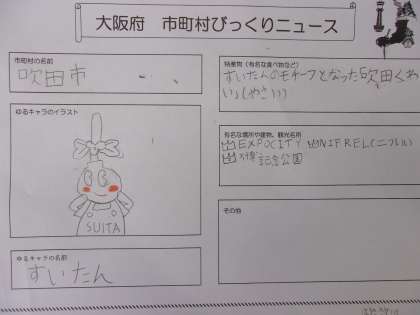 大阪府 市町村びっくりニュース
市町村の名前
吹田市
ゆるキャラのイラスト
SUITA
ゆるキャラの名前
すいたん
特産物(有名な食べ物など)
すいたんのモチーフとなった吹田くわ
い(やさい)
有名な場所や建物、観光名所
EXPOCITY NIFREL(ニフレル)
万博記念公園
その他